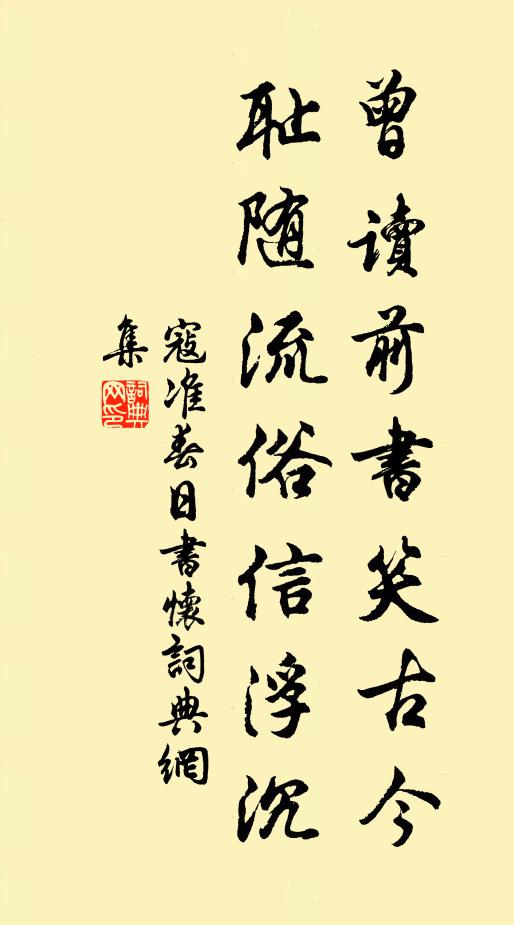 曾讀前書笑古今
耻随流俗信浮沉
寇准春日書懷詞典網
集
詞典
网印